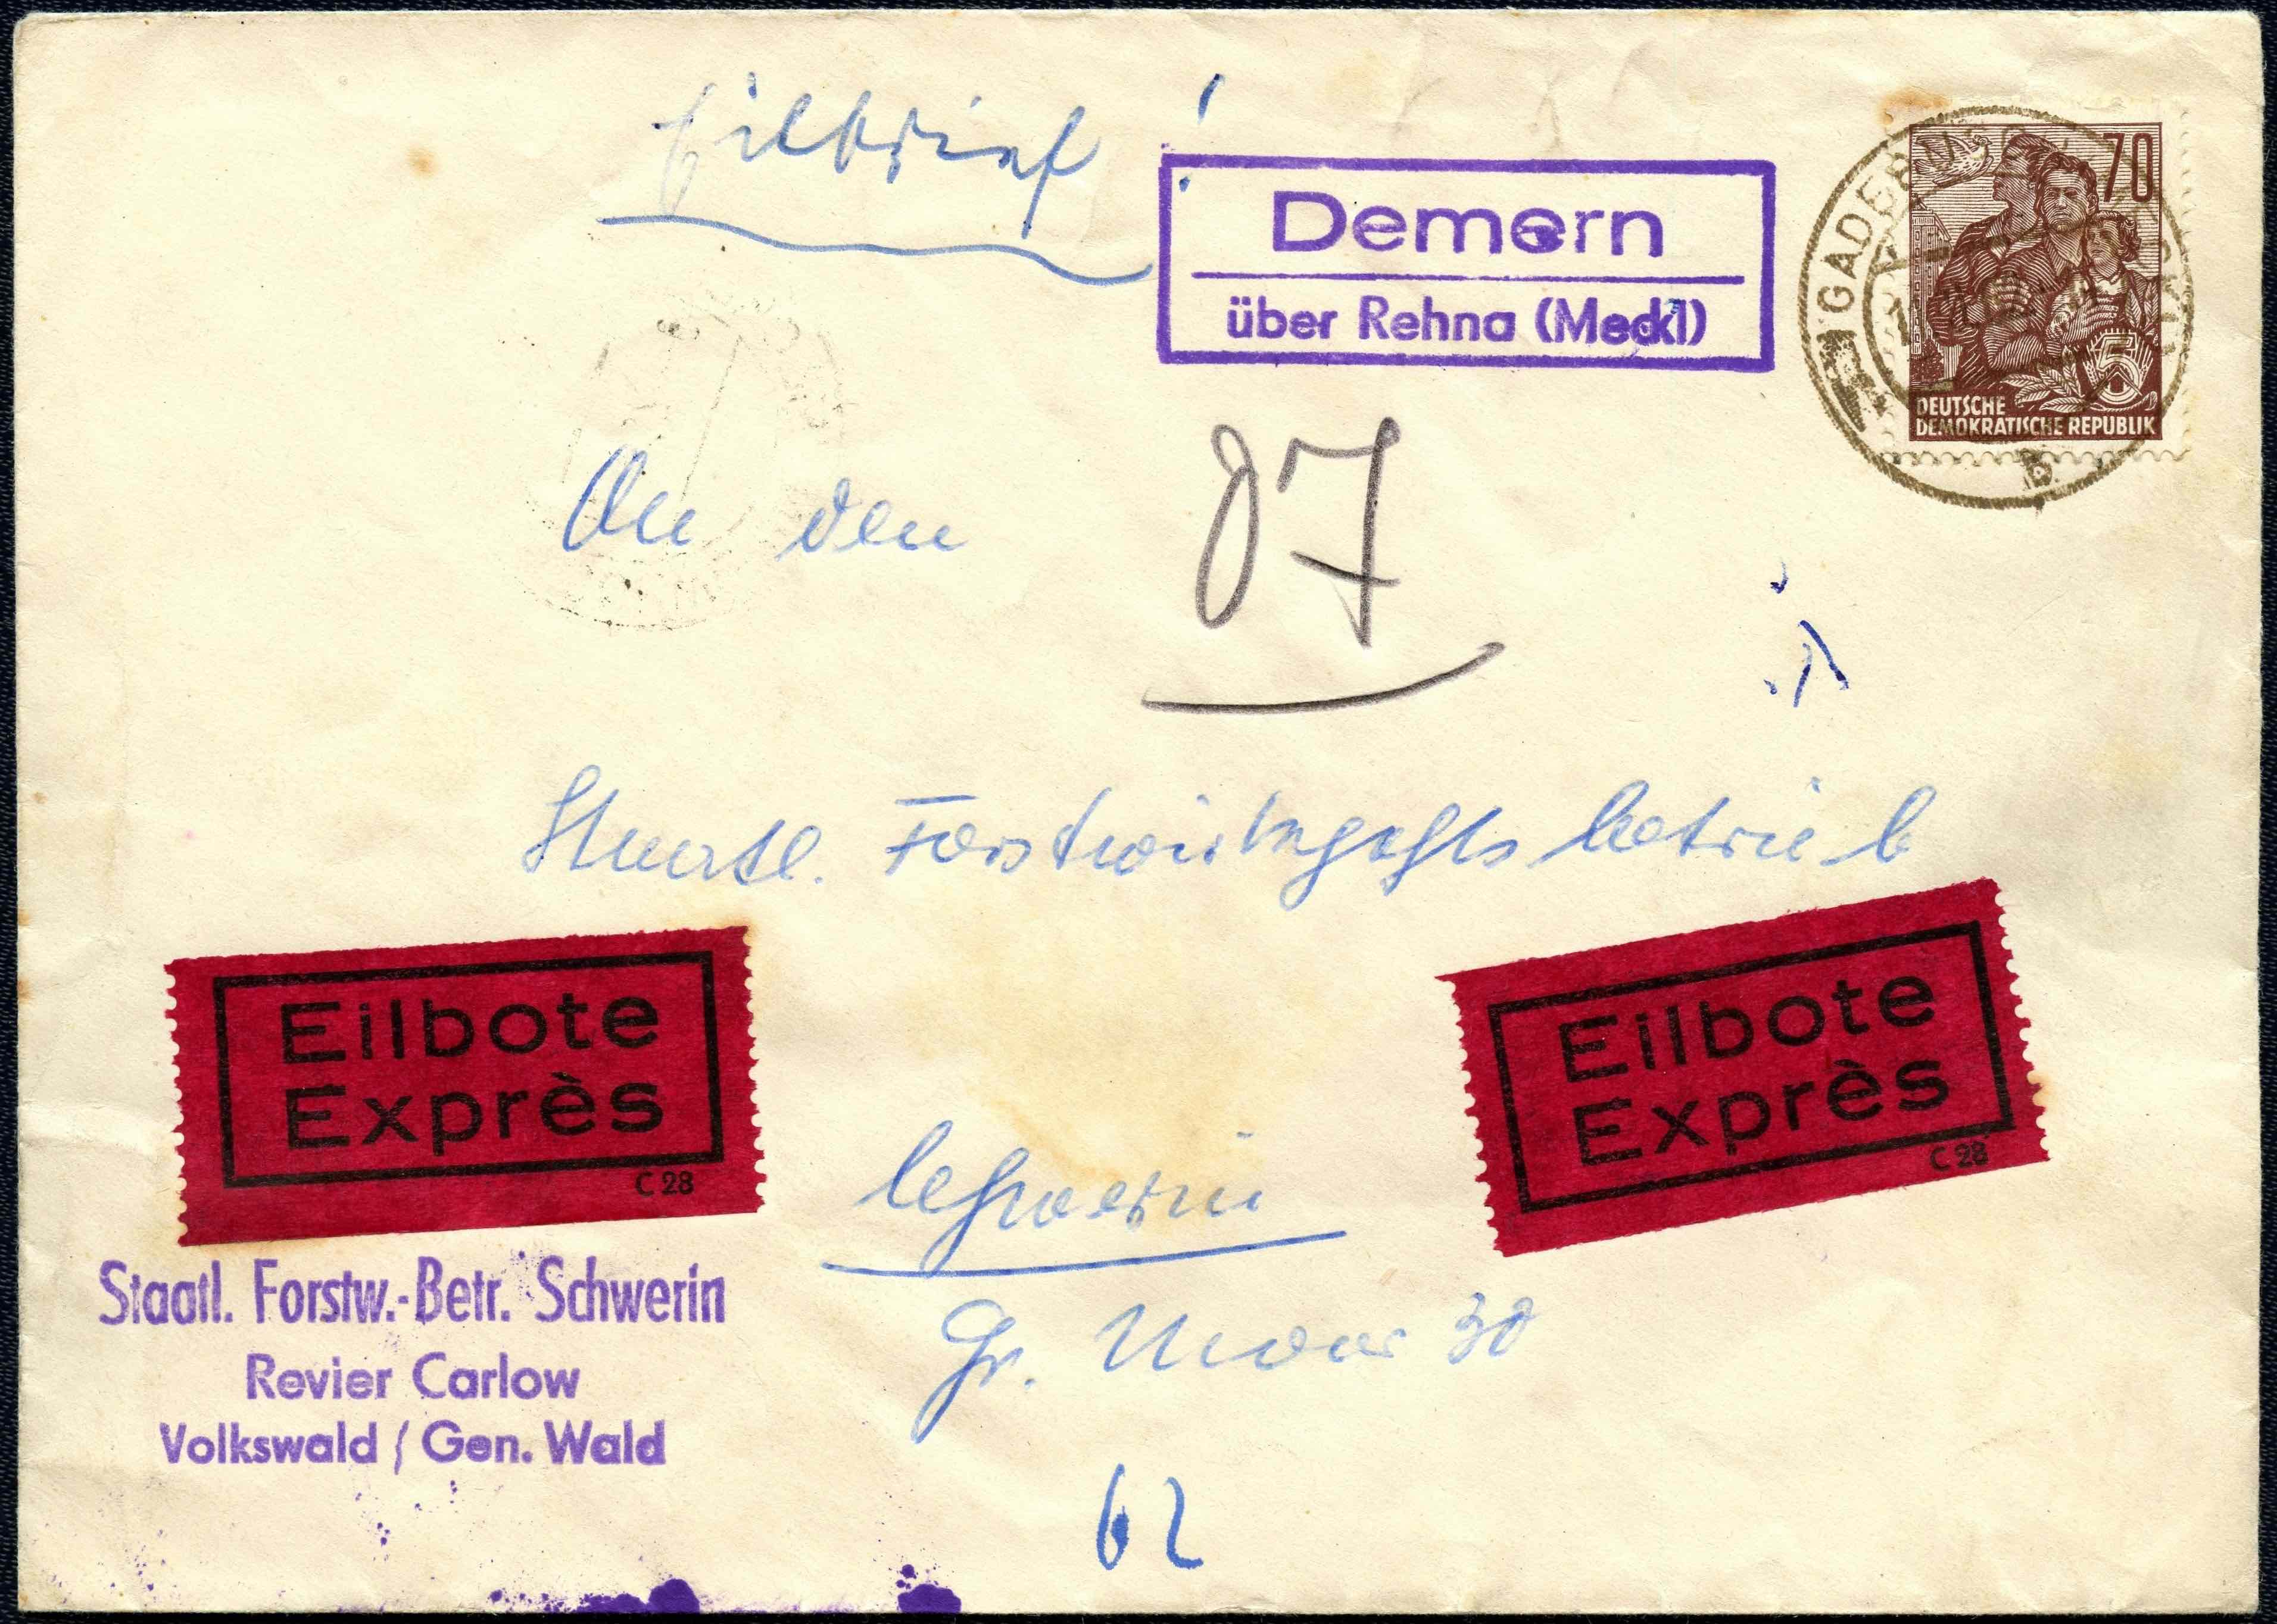 Eilbrief!
Demern
über Rehna (Meckl)
GADEBUSCH
b
70
5
DEUTSCHE
DEMOKRATISCHE REPUBLIK
An den
Staatl. Forstwirtschaftsbetrieb
Eilbote
Exprès
C 28
Eilbote
Exprès
C 28
Schwerin
Gr. Moor 38
62
Staatl. Forstw.-Betr. Schwerin
Revier Carlow
Volkswald / Gen. Wald